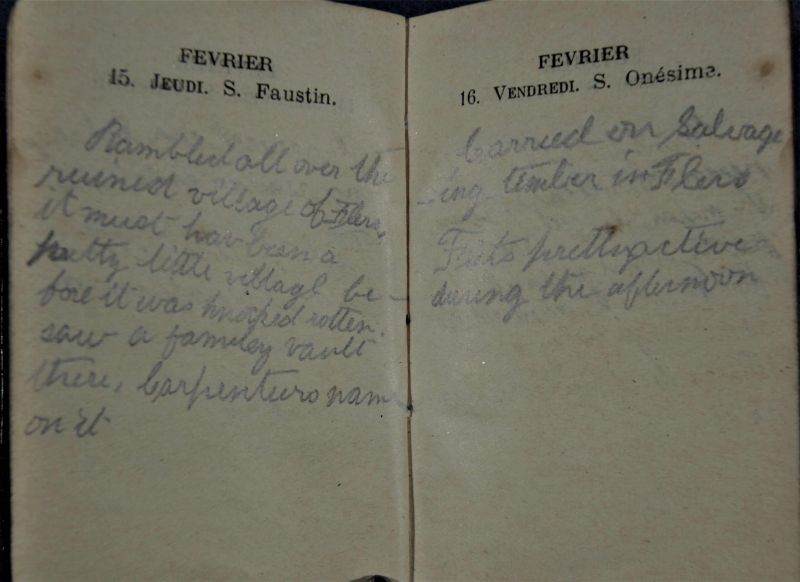 FEVRIER
15. JEUDI. S. Faustin.
Rambled all over the
ruined village of Flers,
it must hav been a
pretty little village be-
fore it was knocked rotten.
saw a family vault
there, Carpenters name
on it
FEVRIER
16. VENDREDI. S. Onésime.
Carried on Salvage
-ing timber in Flers
Fritz pretty active
during the afternoon